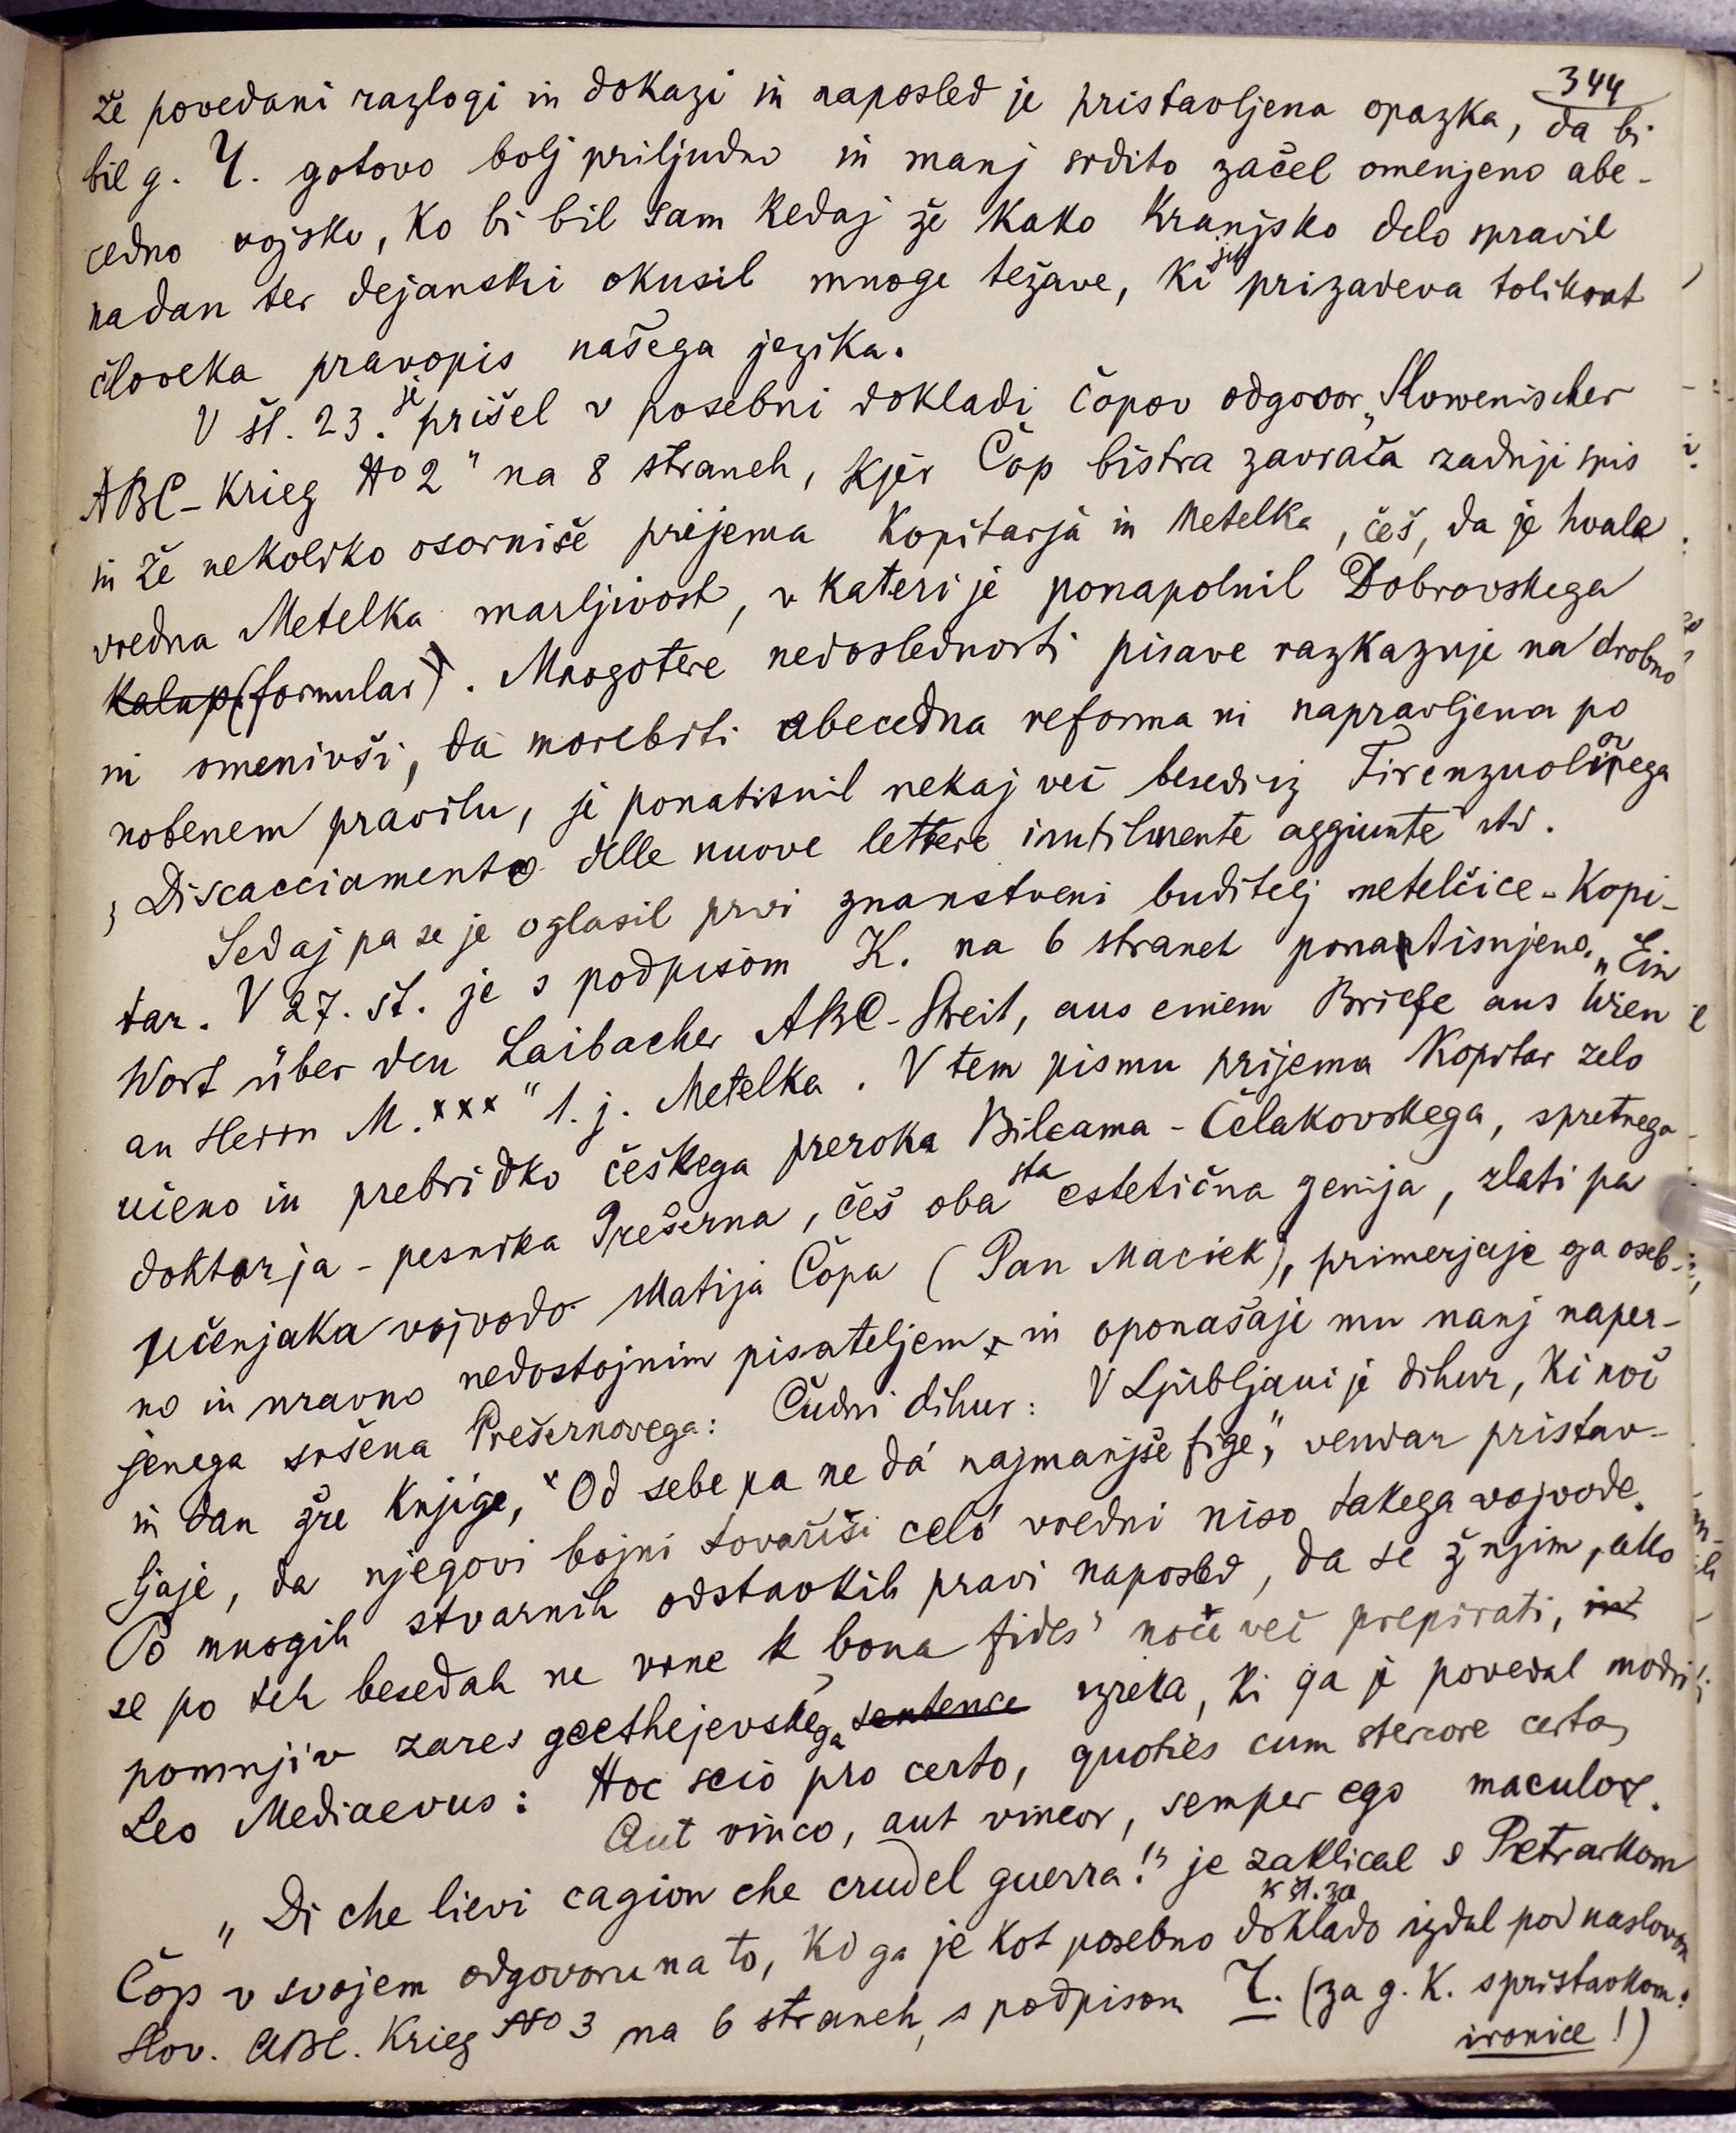 344
že povedani razlogi in dokazi in naposled je pristavljena opazka, da bi
bil g. Y. gotovo bolj priljudno in manj srdito začel omenjeno abe-
cedno vojsko, ko bi bil sam kedaj že kako kranjsko delo spravil
na dan ter dejanski okusil mnoge težave, ki jih prizadeva tolikrat
človeka pravopis našega jezika.
V št. 23. je prišel v posebni dokladi čopov odgovor „Slowenischer
ABC-Krieg No 2" na 8 straneh, kjer Čop bistra zavrača zadnji spis
in že nekoliko osorniše prijema Kopitarja in Metelka, češ, da je hvale
vredna Metelka marljivost, v kateri je ponapolnil Dobrovskega
kalup (formular). Mnogotere nedoslednosti pisave razkazuje na drobno
in omenivši, da morebiti abecedna reforma ni napravljena po
nobenem pravilu, je ponatisnil nekaj več besedi iz Firenzuolovega
„Discacciamento delle nuove lettere inutilmente aggiunte" itd.
Sedaj pa se je oglasil prvi znanstveni buditelj metelčice - Kopi-
tar. V 27. št. je s podpisom K. na 6 straneh ponatisnjeno „Ein
Wort über den Laibacher ABC-Streit, aus einem Briefe aus Wien
an Herrn M. xxx" t. j. Metelka. V tem pismu prijema Kopitar zelo
učeno in prebridko českega preroka Bileama - Čelakovskega, spretnega
doktorja - pesnika Prešerna, češ oba sta estetična genija, zlati pa
učenjaka vojvodo Matija Čopa (Pan Maciek), primerjaje ga oseb-
no in nravno nedostojnim pisateljem x in oponašaje mu nanj naper-
jenega sršena Prešernovega: Čudni dihur: V Ljubljani je dihur, ki noč
in dan žre knjige, x Od sebe pa ne dá najmanjše fige," vendar pristav-
ljaje, da njegovi bojni tovariši celó vredni niso takega vojvode.
Po mnogih stvarnih odstavkih pravi naposled, da se ž njim, ako
se po teh besedah ne vrne k ‚bona fides' noče več prepirati, in
pomnjiv zares goethejevskega sentence izreka, ki ga je povedal modri
Leo Mediaevus: Hoc scio pro certo, quoties cum stercore certo,
Aut vinco, aut vincor, semper ego maculor.
„Di che lievi cagion che crudel guerra!" je zaklical s Petrarkom
Čop v svojem odgovoru na to, ki ga je kot posebno dokládo k št. 30 izdal pod naslovom
Slov. ABC. Krieg No 3 na 6 straneh, s podpisom Y. (za g. K. s pristavkom:
ironice!)